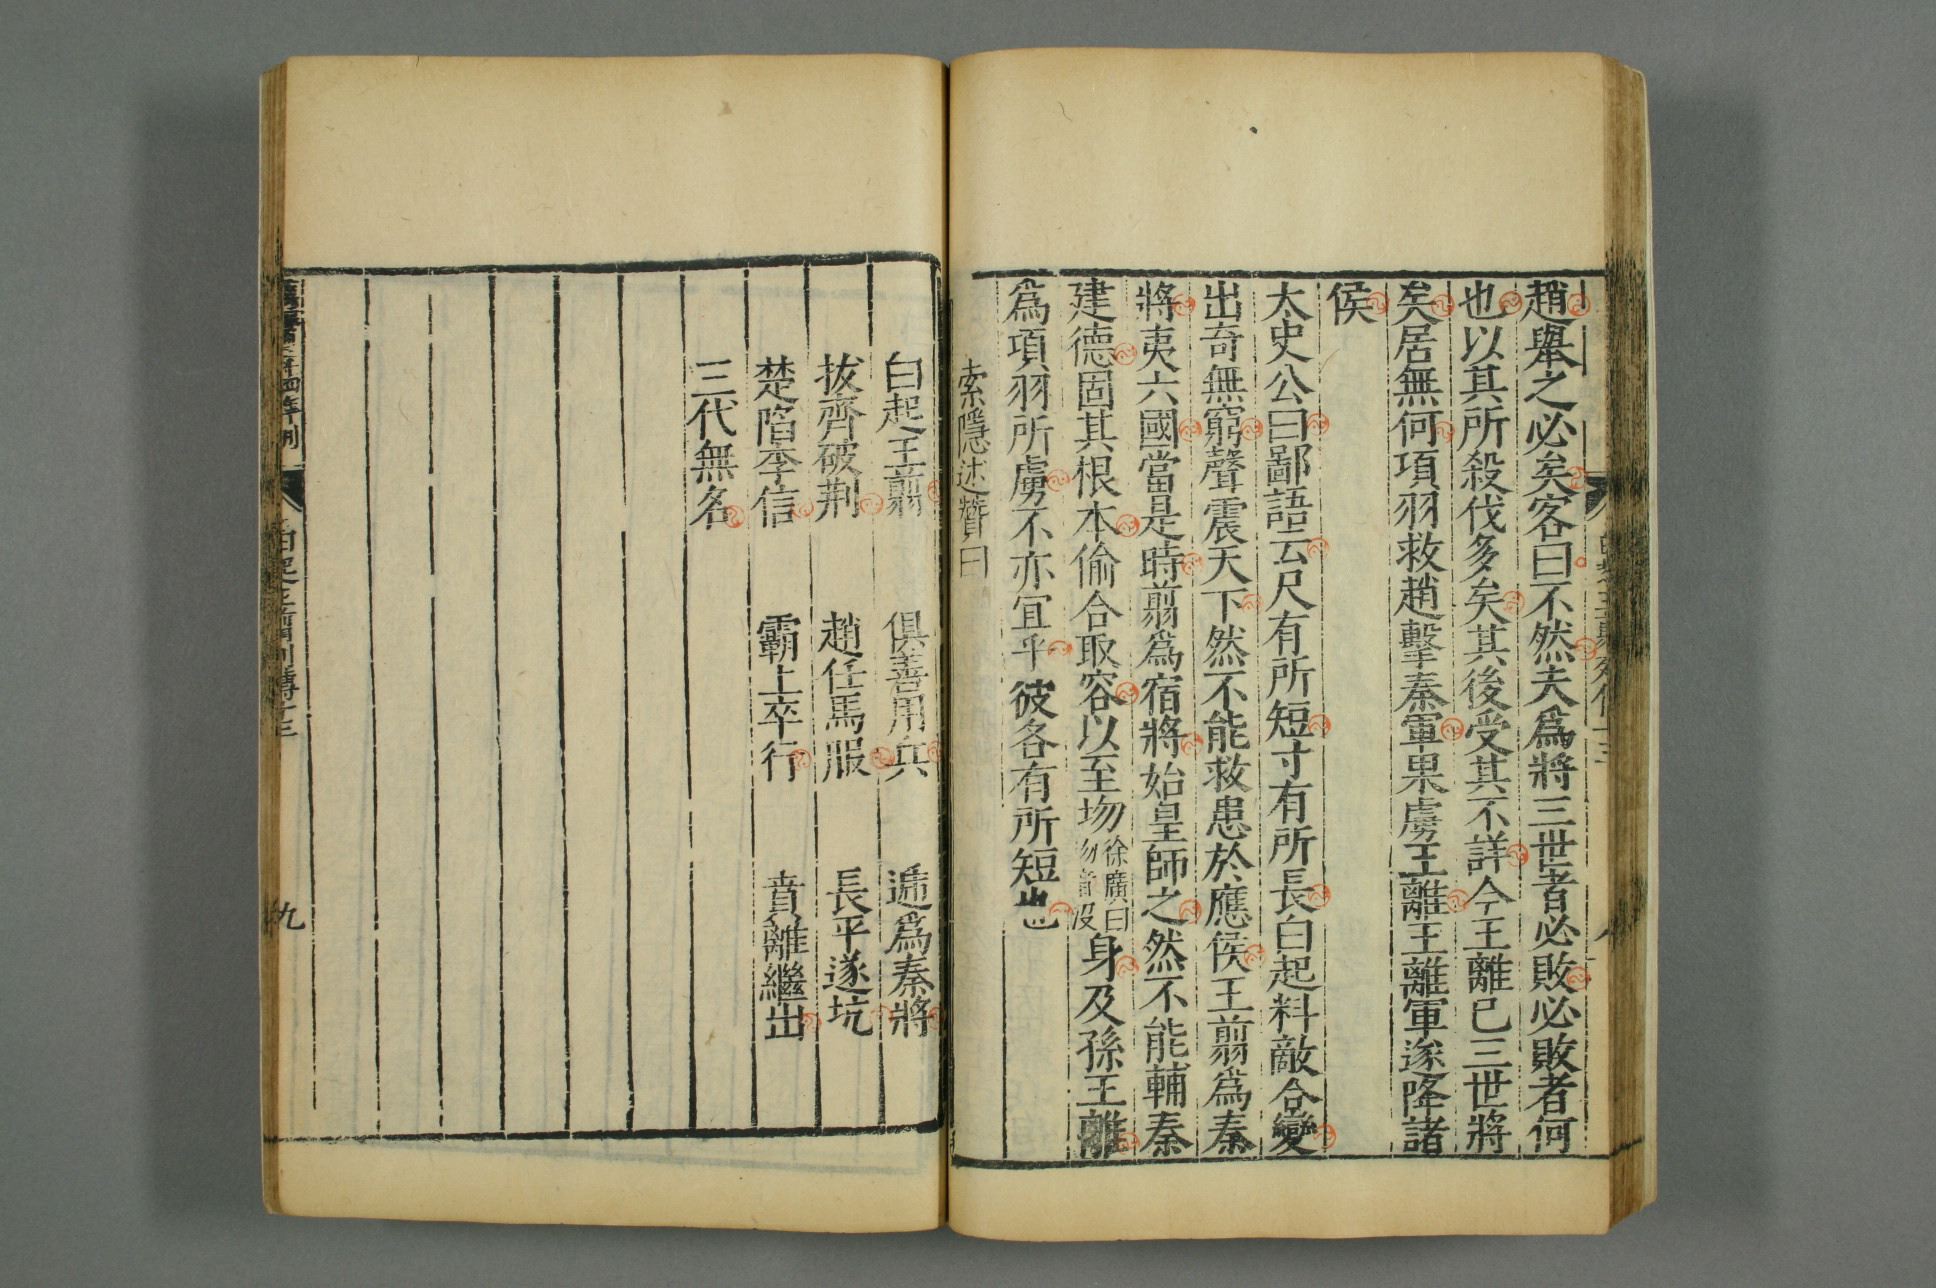 趙舉之必矣客曰不然夫爲將三世者必敗必敗者何
也以其所殺伐多矣其後受其不詳今王離已三世將
矣居無何項羽救趙擊秦軍果虜王離王離軍遂降諸
侯
太史公曰鄙語云尺有所短寸有所長白起料敵合變
出奇無窮聲震天下然不能救患於應侯王翦爲秦
將夷六國當是時翦爲宿將始皇師之然不能輔秦
建德固其根本偷合取容以至㘬徐廣曰㘬音沒身及孫王離
爲項羽所虜不亦宜乎彼各有所短也
索隱述贊曰
白起王翦 俱善用兵 遞爲秦將
拔齊破荆 趙任馬服 長平遂坑
楚陷李信 霸上卒行 賁離繼出
三代無名
白起王翦列傳十三
九